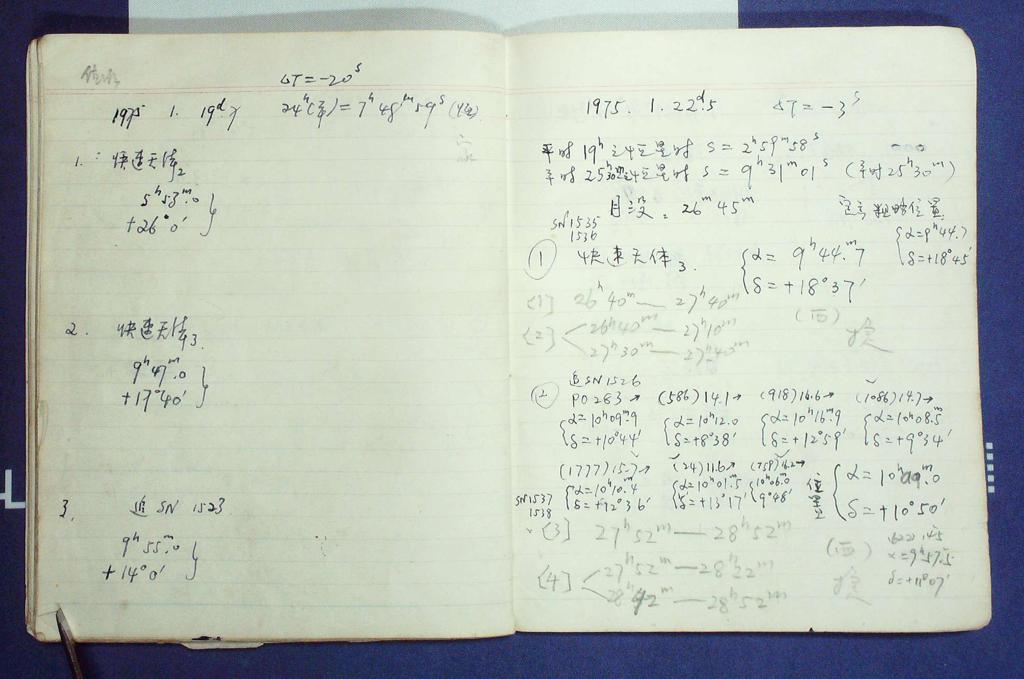 ΔT=-20ˢ
1975 1. 19ᵈ.7 24ʰ(平)=7ʰ48ᵐ59ˢ(恒)
1. 快速天体₂
5ʰ53ᵐ.0
+26°0′
2. 快速天体₃.
9ʰ47ᵐ.0
+17°40′
3. 追 SN 1523
9ʰ55ᵐ.0
+14°0′
1975. 1. 22ᵈ.5 ΔT=-3ˢ
平时 19ʰ 之恒星时 S=2ʰ59ᵐ58ˢ
平时 25ʰ30ᵐ之恒星时 S=9ʰ31ᵐ01ˢ (平时25ʰ30ᵐ)
月没: 26ʰ45ᵐ
粗略位置
SN1535
1536
① 快速天体₃.
α=9ʰ44.ᵐ7
δ=+18°37′
α=9ʰ44.7
δ=+18°45′
[1] 26ʰ40ᵐ—27ʰ40ᵐ
(西)
[2] 26ʰ40ᵐ—27ʰ10ᵐ
27ʰ30ᵐ—27ʰ40ᵐ
② 追SN1526
PO283→ (586)14.1→ (918)14.6→ (1086)14.7→
α=10ʰ09ᵐ.9 α=10ʰ12.0 α=10ʰ16ᵐ.9 α=10ʰ08.5ᵐ
δ=+10°44′ δ=+8°38′ δ=+12°59′ δ=+9°34′
(1777)15.7→ (24)11.6→ (759)
α=10ʰ10ᵐ.4 α=10ʰ01ᵐ.5 10ʰ06ᵐ.0
δ=+12°36′ δ=+13°17′ 9°48′
位置
α=10ʰ09ᵐ.0
δ=+10°50′
SN1537
1538
[3] 27ʰ52ᵐ—28ʰ52ᵐ
(西)
α=9ʰ57ᵐ.5
δ=+11°07′
[4] 27ʰ52ᵐ—28ʰ22ᵐ
28ʰ42ᵐ—28ʰ52ᵐ